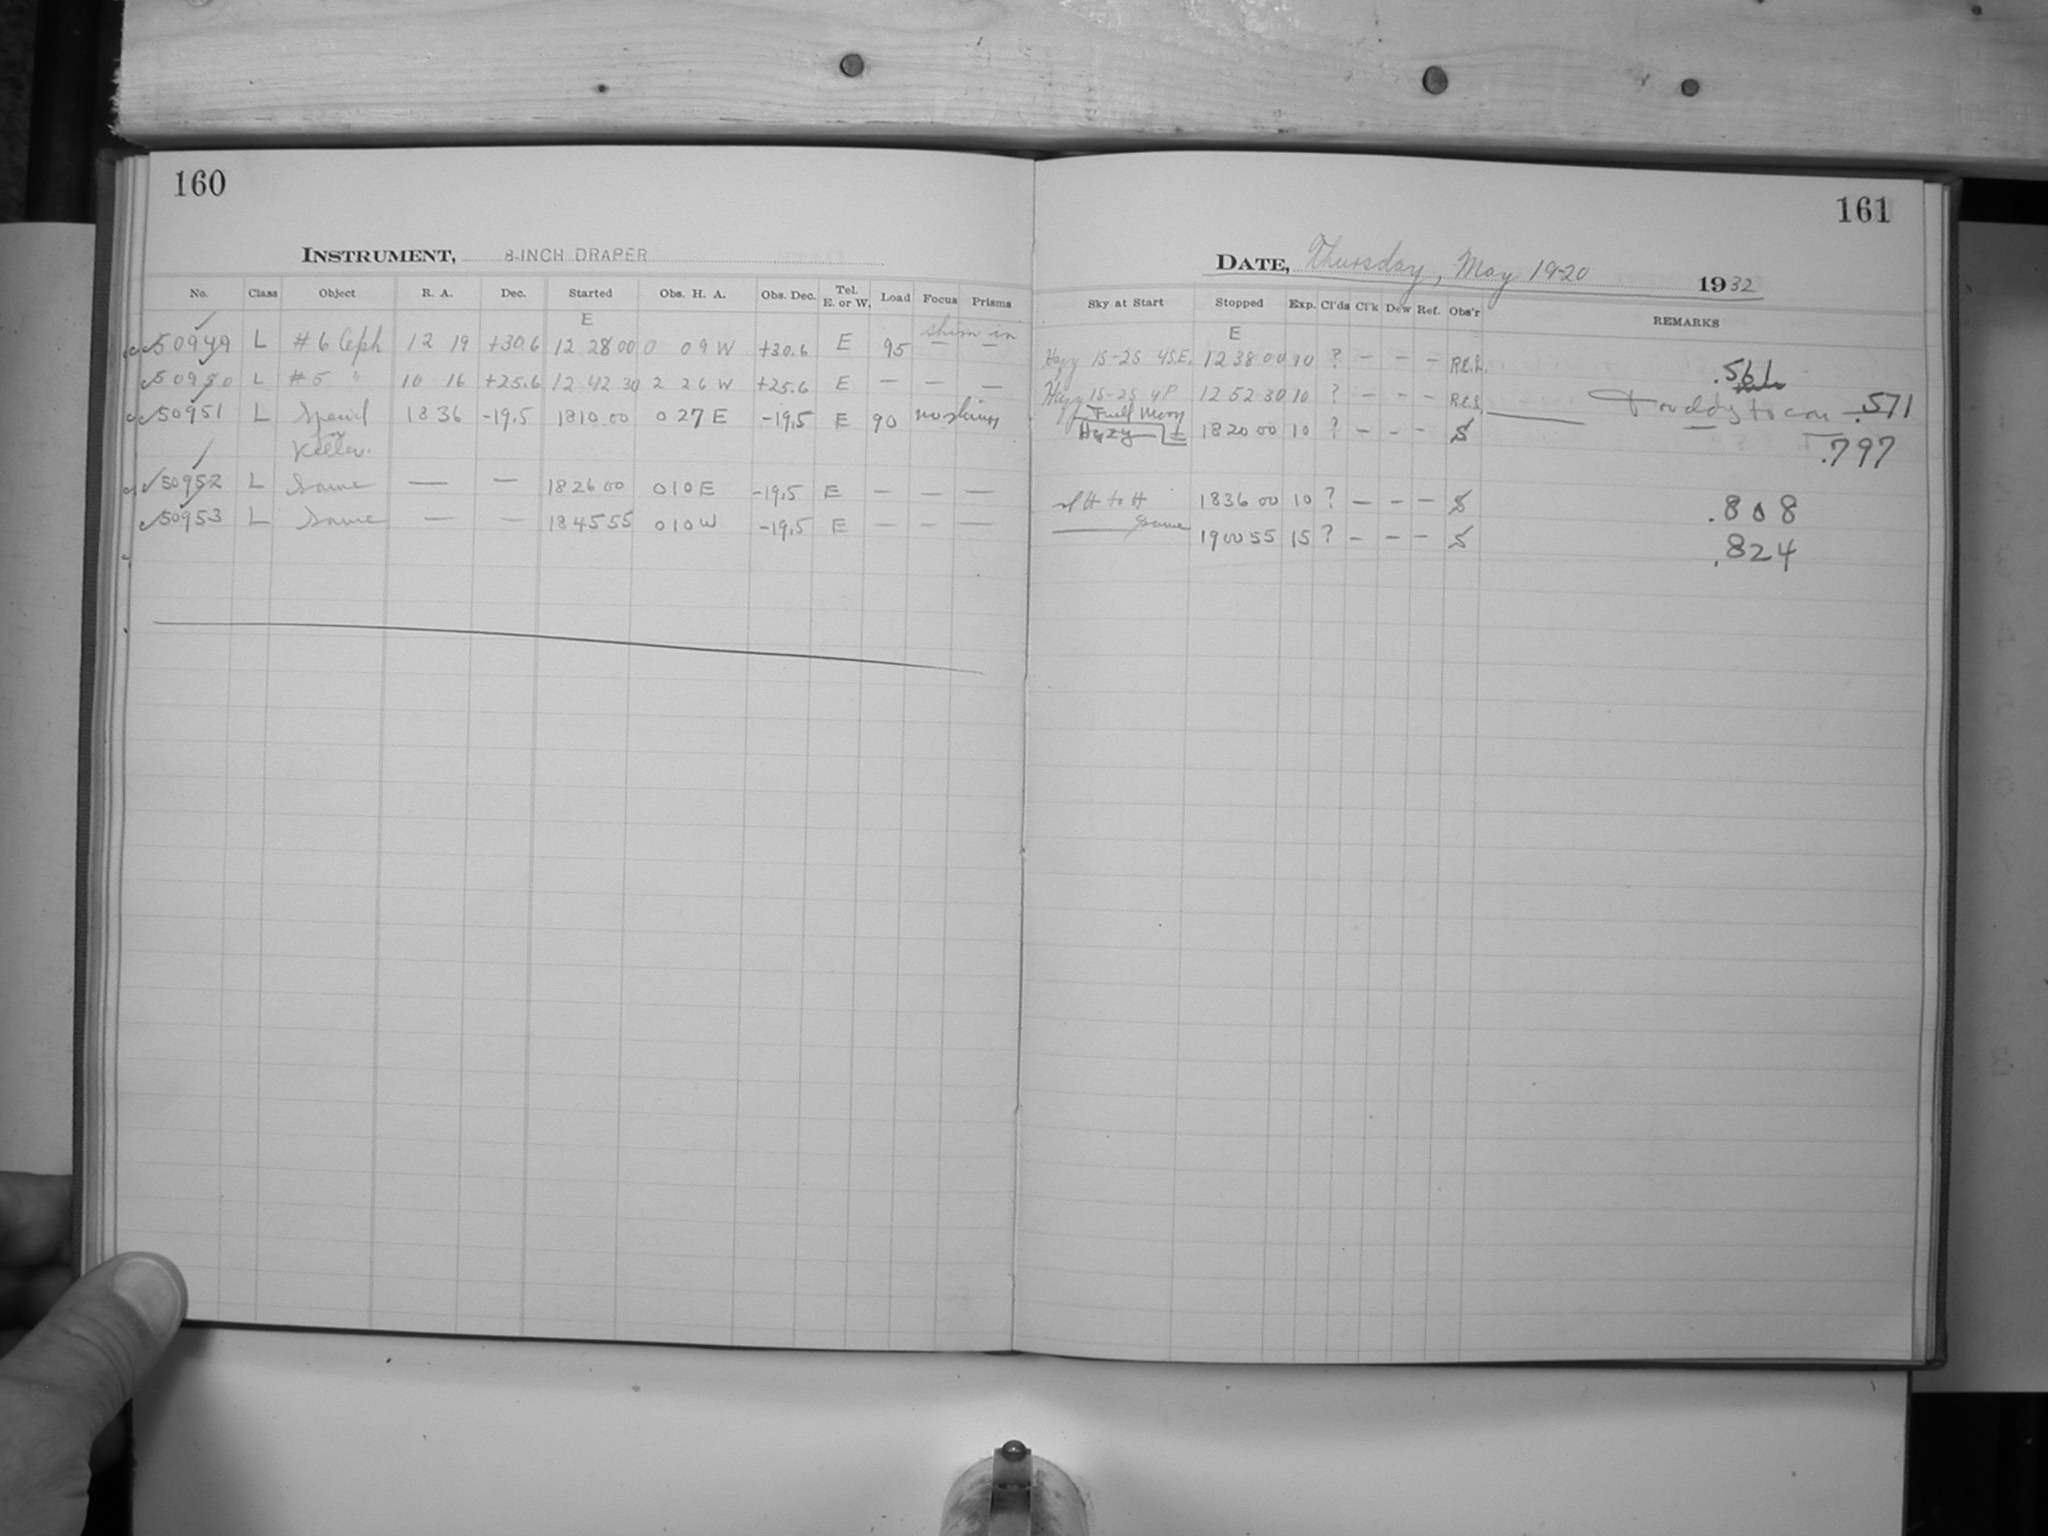 160
INSTRUMENT, 8-INCH DRAPER
No. Class Object R. A. Dec. Started Obs. H. A. Obs. Dec. Tel. E. or W. Load Focus Prisms
E
50949 L #6 Ceph 12 19 +30.6 12 28 00 0 09 W +30.6 E 95 shim in
50950 L #5 " 10 16 +25.6 12 42 30 2 26 W +25.6 E — — —
50951 L Special 18 36 -19.5 18 10 00 0 27 E -19.5 E 90 no shims
for
50952 L Same — — 18 26 00 0 10 E -19.5 E — — —
50953 L Same — — 18 45 55 0 10 W -19.5 E — — —
161
DATE, Thursday, May 19-20 1932
Sky at Start Stopped Exp. Cl'ds Cl'k Dew Ref. Obs'r REMARKS
E
Hazy 15-25 4SE. 12 38 00 10 ? — — — R.E.S. .566
Hazy 15-25 4P 12 52 30 10 ? — — — R.E.S. .571
Full Moon
Hazy 18 20 00 10 ? — — — S .797
H to H 18 36 00 10 ? — — — S .808
Same 19 00 55 15 ? — — — S .824